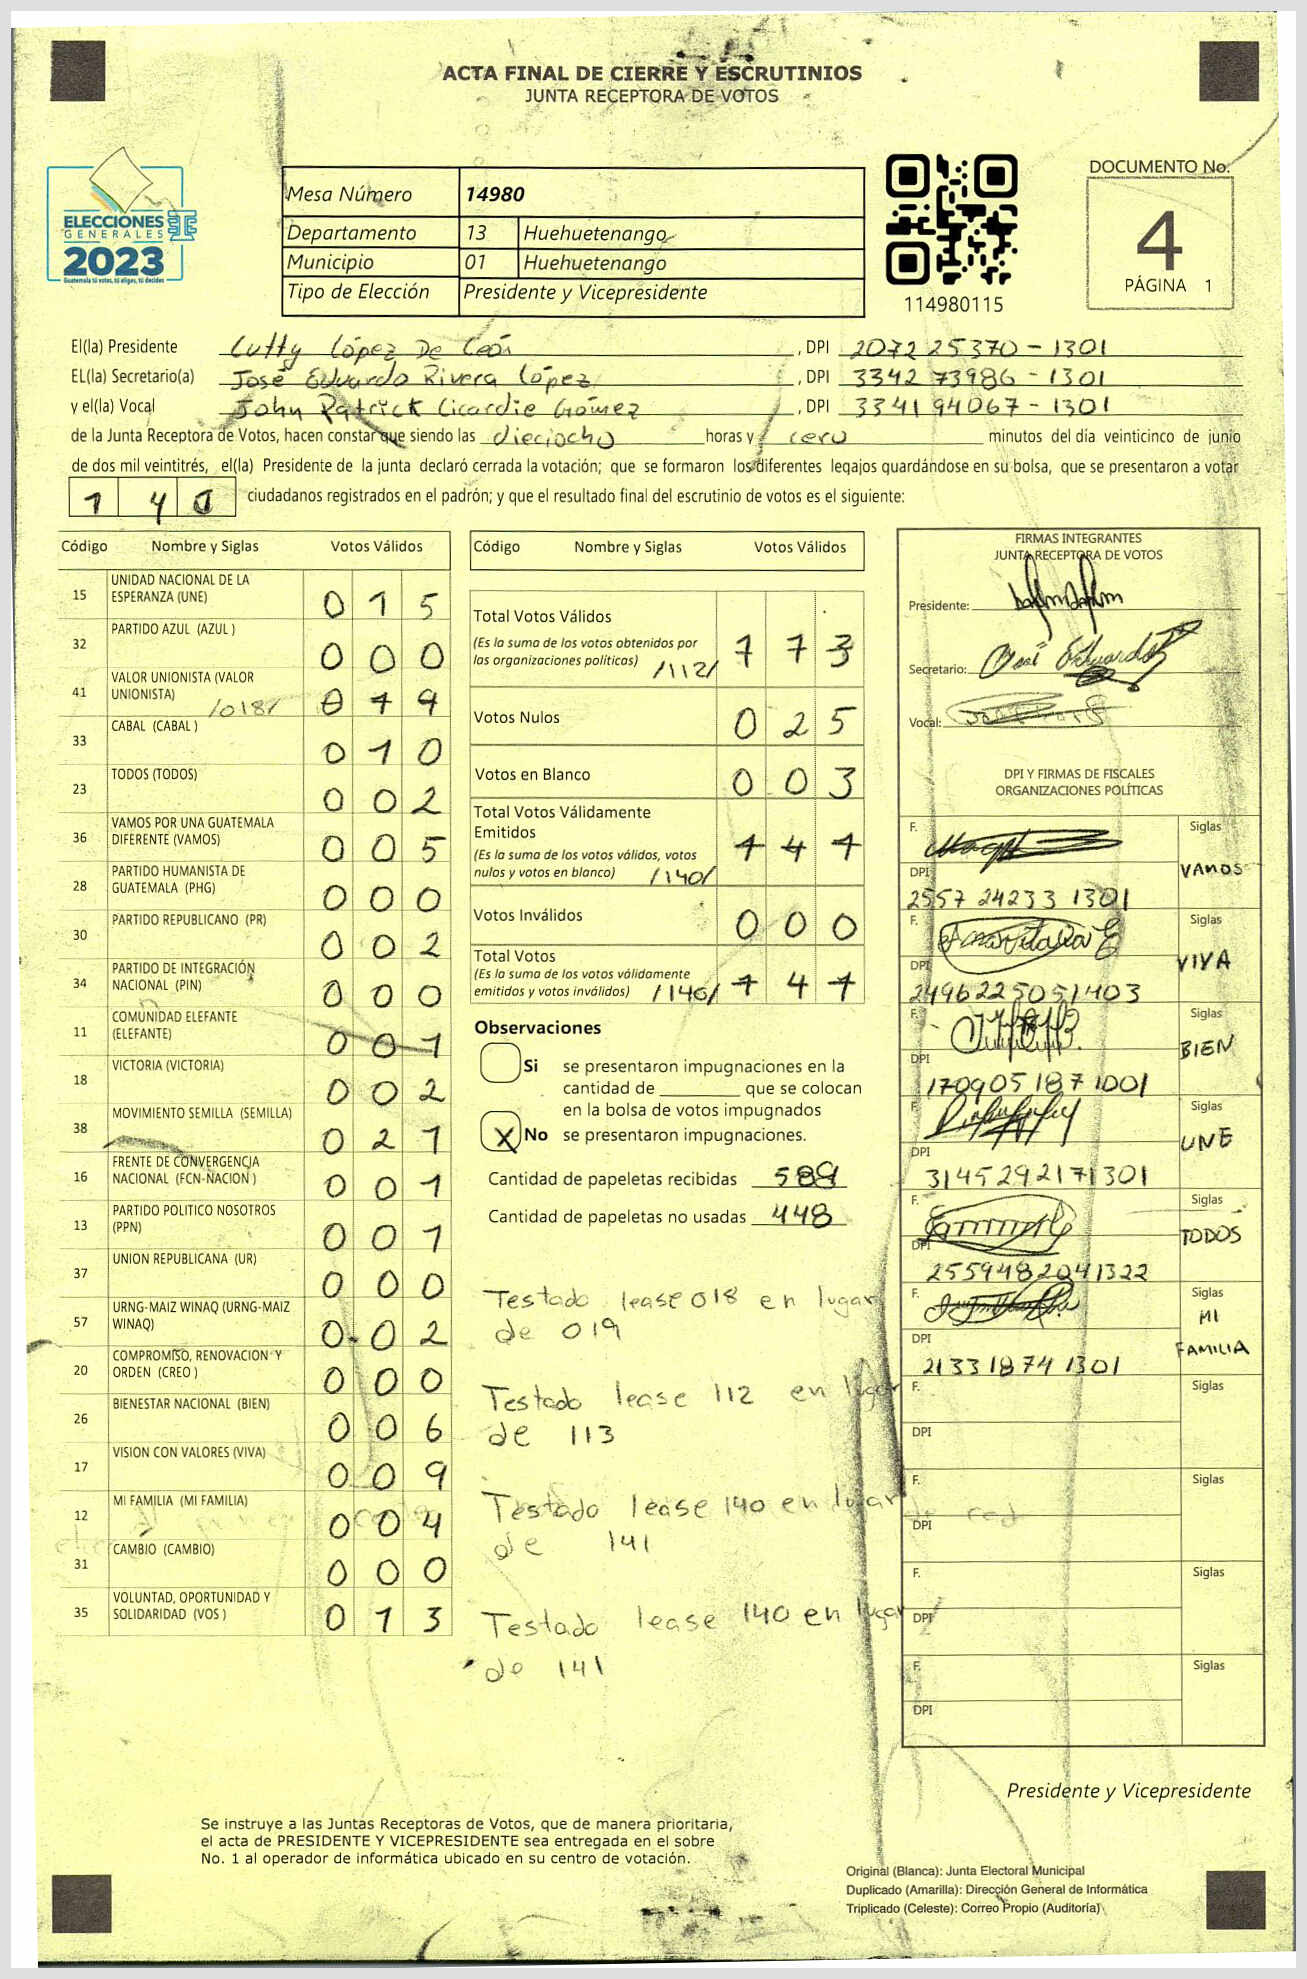 ACTA FINAL DE CIERRE Y ESCRUTINIOS
JUNTA RECEPTORA DE VOTOS
ELECCIONES
GENERALES
2023
Guatemala tú votas, tú eliges, tú decides
Mesa Número 14980
Departamento 13 Huehuetenango
Municipio 01 Huehuetenango
Tipo de Elección Presidente y Vicepresidente
114980115
DOCUMENTO No.
4
PÁGINA 1
El(la) Presidente Lutty López De León, DPI 2072 25370-1301
EL(la) Secretario(a) José Eduardo Rivera López, DPI 3342 73986-1301
y el(la) Vocal John Patrick Cicardie Gómez, DPI 3341 94067-1301
de la Junta Receptora de Votos, hacen constar que siendo las dieciocho horas y cero minutos del día veinticinco de junio
de dos mil veintitrés, el(la) Presidente de la junta declaró cerrada la votación; que se formaron los diferentes legajos guardándose en su bolsa, que se presentaron a votar
1 4 0 ciudadanos registrados en el padrón; y que el resultado final del escrutinio de votos es el siguiente:
Código Nombre y Siglas Votos Válidos
15 UNIDAD NACIONAL DE LA
ESPERANZA (UNE) 0 1 5
32 PARTIDO AZUL (AZUL ) 0 0 0
41 VALOR UNIONISTA (VALOR
UNIONISTA) /018/ 0 1 9
33 CABAL (CABAL ) 0 1 0
23 TODOS (TODOS) 0 0 2
36 VAMOS POR UNA GUATEMALA
DIFERENTE (VAMOS) 0 0 5
28 PARTIDO HUMANISTA DE
GUATEMALA (PHG) 0 0 0
30 PARTIDO REPUBLICANO (PR) 0 0 2
34 PARTIDO DE INTEGRACIÓN
NACIONAL (PIN) 0 0 0
11 COMUNIDAD ELEFANTE
(ELEFANTE) 0 0 1
18 VICTORIA (VICTORIA) 0 0 2
38 MOVIMIENTO SEMILLA (SEMILLA) 0 2 1
16 FRENTE DE CONVERGENCIA
NACIONAL (FCN-NACION ) 0 0 1
13 PARTIDO POLITICO NOSOTROS
(PPN) 0 0 1
37 UNION REPUBLICANA (UR) 0 0 0
57 URNG-MAIZ WINAQ (URNG-MAIZ
WINAQ) 0 0 2
20 COMPROMISO, RENOVACION Y
ORDEN (CREO ) 0 0 0
26 BIENESTAR NACIONAL (BIEN) 0 0 6
17 VISION CON VALORES (VIVA) 0 0 9
12 MI FAMILIA (MI FAMILIA) 0 0 4
31 CAMBIO (CAMBIO) 0 0 0
35 VOLUNTAD, OPORTUNIDAD Y
SOLIDARIDAD (VOS ) 0 1 3
Código Nombre y Siglas Votos Válidos
Total Votos Válidos
(Es la suma de los votos obtenidos por
las organizaciones políticas) /112/ 1 1 3
Votos Nulos 0 2 5
Votos en Blanco 0 0 3
Total Votos Válidamente
Emitidos
(Es la suma de los votos válidos, votos
nulos y votos en blanco) /140/ 1 4 1
Votos Inválidos 0 0 0
Total Votos
(Es la suma de los votos válidamente
emitidos y votos inválidos) /140/ 1 4 1
Observaciones
Si se presentaron impugnaciones en la
cantidad de ________ que se colocan
en la bolsa de votos impugnados
X No se presentaron impugnaciones.
Cantidad de papeletas recibidas 589
Cantidad de papeletas no usadas 448
Testado lease 018 en lugar
de 019
Testado lease 112 en lugar
de 113
Testado lease 140 en lugar
de 141
Testado lease 140 en lugar
de 141
FIRMAS INTEGRANTES
JUNTA RECEPTORA DE VOTOS
Presidente:
Secretario: José Eduardo
Vocal:
DPI Y FIRMAS DE FISCALES
ORGANIZACIONES POLÍTICAS
F. Siglas
VAMOS
DPI
2557 24233 1301
F. Siglas
VIVA
DPI
2496225051403
F. Siglas
BIEN
DPI
1709051871001
F. Siglas
UNE
DPI
3145292171301
F. Siglas
TODOS
DPI
2559482041322
F. Siglas
MI
FAMILIA
DPI
213318741301
F. Siglas
DPI
F. Siglas
DPI
F. Siglas
DPI
F. Siglas
DPI
Presidente y Vicepresidente
Se instruye a las Juntas Receptoras de Votos, que de manera prioritaria,
el acta de PRESIDENTE Y VICEPRESIDENTE sea entregada en el sobre
No. 1 al operador de informática ubicado en su centro de votación.
Original (Blanca): Junta Electoral Municipal
Duplicado (Amarilla): Dirección General de Informática
Triplicado (Celeste): Correo Propio (Auditoría)